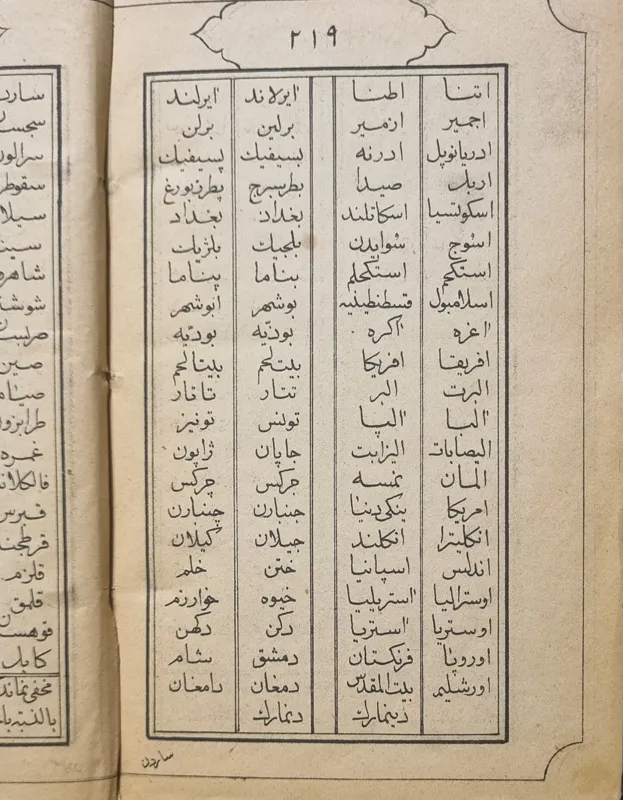 ۲۱۹
اتنا اطنا ایرلاند ایرلند
اجمیر ازمیر برلین برلن
ادریانوپل ادرنه بسیفیك پسیفیك
اربل صیدا بطرسبرج پطرزبورغ
اسکوتسیا اسکاتلند بغداد بغداد
اسوج سوایدن بلجیك بلژیك
استکم استکحلم بناما پیناما
اسلامبول قسطنطینیه بوشهر ابوشهر
اغره اکره بودیه بودیه
افریقا افریکا بیت لحم بیتالحم
البرت البر تتار تاتار
البا الپا تولس تونیز
الیصابات الیزابت جاپان ژاپون
المان نمسه جرکس چرکس
امریکا ینکی دنیا جنبارن چنبارن
انکلیترا انکلند جیلان کیلان
اندلس اسپانیا ختن خلم
اوسترالیا استریلیا خیوه خوارزم
اوستریا استریا دکن دکهن
اوروپا فرنکستان دمشق شام
اورشلیم بیت المقدس دمغان دامغان
دینمارك دنمارك
سارن
سجستا
سرالون
سقوطر
سیلا
سین
شاهره
شوشت
صین
صیام
طرابزو
غمره
فالکلاند
قبرس
قرطجن
قلزم
قلمق
قوهست
کابل
مخفی نماند
بالنبته با